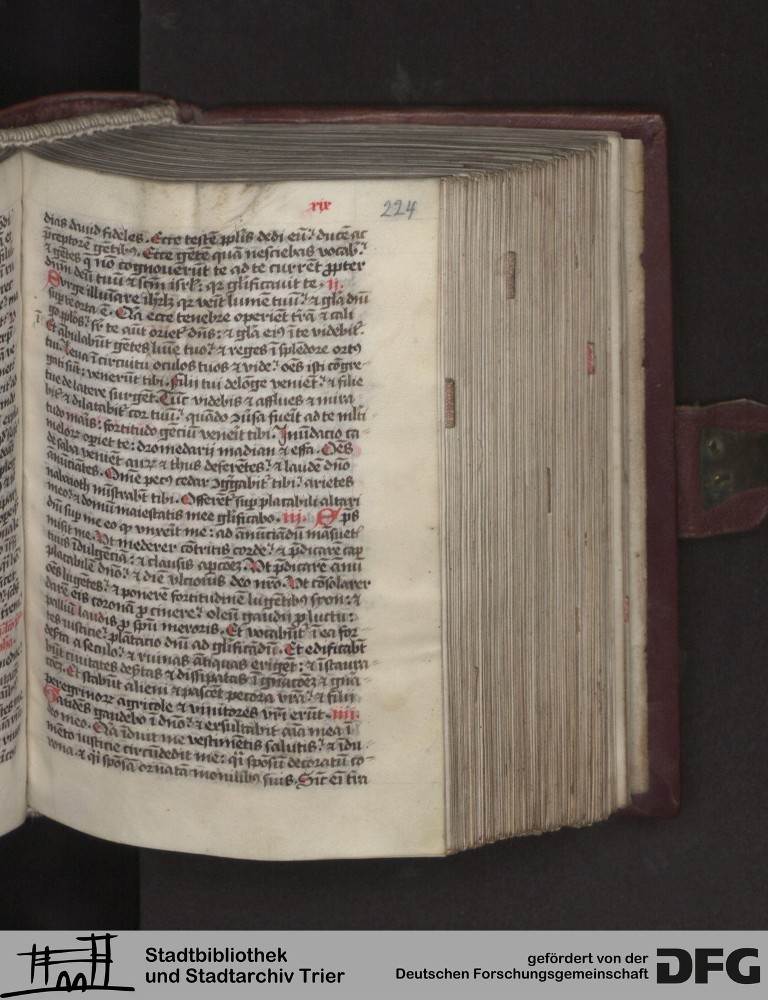 xix
224
dias dauid fideles. Ecce testē ppl̄is dedi eū: ducē ac
p̄ceptorē gētibꝫ. Ecce gētē quā nesciebas vocab̄:
⁊ gētes q̄ nō cognouerūt te ad te current ꝓpter
dn̄m deū tuū ⁊ sc̄m isrl̄: qr glīficauit te. ij.
Surge illuīare ihrlꝫ qr venit lumē tuū: ⁊ gl̄a dn̄i
sup te orta ē. Q̄a ecce tenebre operiēt trā ⁊ cali
go ppl̄os: sr̄ te aūt oriet dn̄s: ⁊ gl̄a eiꝰ ī te videbit̄
Et ābulabūt gētes ī lumīe tuo: ⁊ reges ī splēdore ortꝰ
tui. Leua ī circuitu oculos tuos ⁊ vide: oēs isti cōgre-
gati sūt: venerūt tibi. Filij tui de lōge veniēt: ⁊ filie
tue de latere surgēt. Tūc videbis ⁊ afflues ⁊ mira
bit̄ ⁊ dilatabit̄ cor tuū: quādo ꝯūsa fuerit ad te mlti
tudo maris: fortitudo gēciū venerit tibi. Inūdacio ca-
melorꝫ opiet te: dromedarij madian ⁊ effa. Oēs
de saba veniēt aurꝫ ⁊ thus deferētes: ⁊ laudē dn̄o
anūciātes. Om̄e pecꝰ cedar ꝯgͤgabit̄ tibi: arietes
nabaioth mīstrabūt tibi. Offerēt̄ sup placabili altari
meo: ⁊ domū maiestatis mee glīficabo. iij. Sp̄s
dn̄i sup me eo ꝙ vnxerit me: ad anūciādū māsuet̄
misit me. Vt mederer cōtritis corde: ⁊ p̄dicarē cap
tiuis īdulgēciā: ⁊ clausis apcōeꝫ. Vt p̄dicarē annū
placabilē dn̄o: ⁊ diē vlcionis deo nr̄o. Vt cōsolarer
oēs lugētes: ⁊ ponerē fortitudinē lugētibꝫ syon: ⁊
darē eis coronā p cinere: oleū gaudij p luctu:
palliū laudis p sp̄u meroris. Et vocabūt̄ ī ea for
tes iusticie: plātacio dn̄i ad glīficādū. Et edificabūt
desta a seculo: ⁊ ruinas ātiquas erigēt: ⁊ īstaura-
būt ciuitates deꝑtas ⁊ dissipatas ī gnācōeꝫ ⁊ gna-
cōeꝫ. Et stabūt alieni ⁊ pascēt pecora vrā: ⁊ filij
peregrinorꝫ agricole ⁊ vinitores vr̄i erūt. iiij.
Gaudēs gaudebo ī dn̄o: ⁊ exsultabit aīa mea ī
deo meo. Q̄a īduit me vestimētis salutis: ⁊ īdu-
mēto iusticie circūdedit me: q̄si spōsū decoratū co-
rona: ⁊ q̄si spōsā ornatā monilibꝫ suis. Sic̄ eī tr̄a
Stadtbibliothek
und Stadtarchiv Trier
gefördert von der
Deutschen Forschungsgemeinschaft
DFG